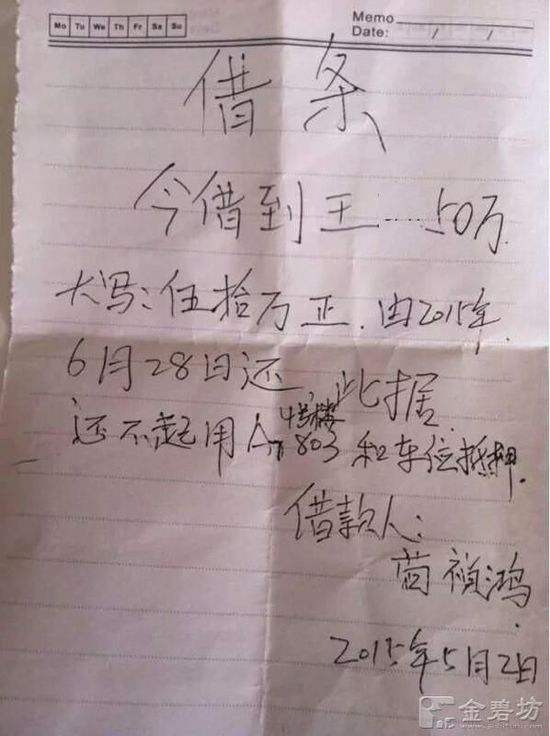 Mo Tu We Th Fr Sa Su
Memo
Date: / /
借条
今借到王……50万
大写:伍拾万正.由2015年
6月28日还,此据.
4号楼
还不起用A 803和车位抵押.
借款人:
祯鸿.
2015年5月2日
金碧坊